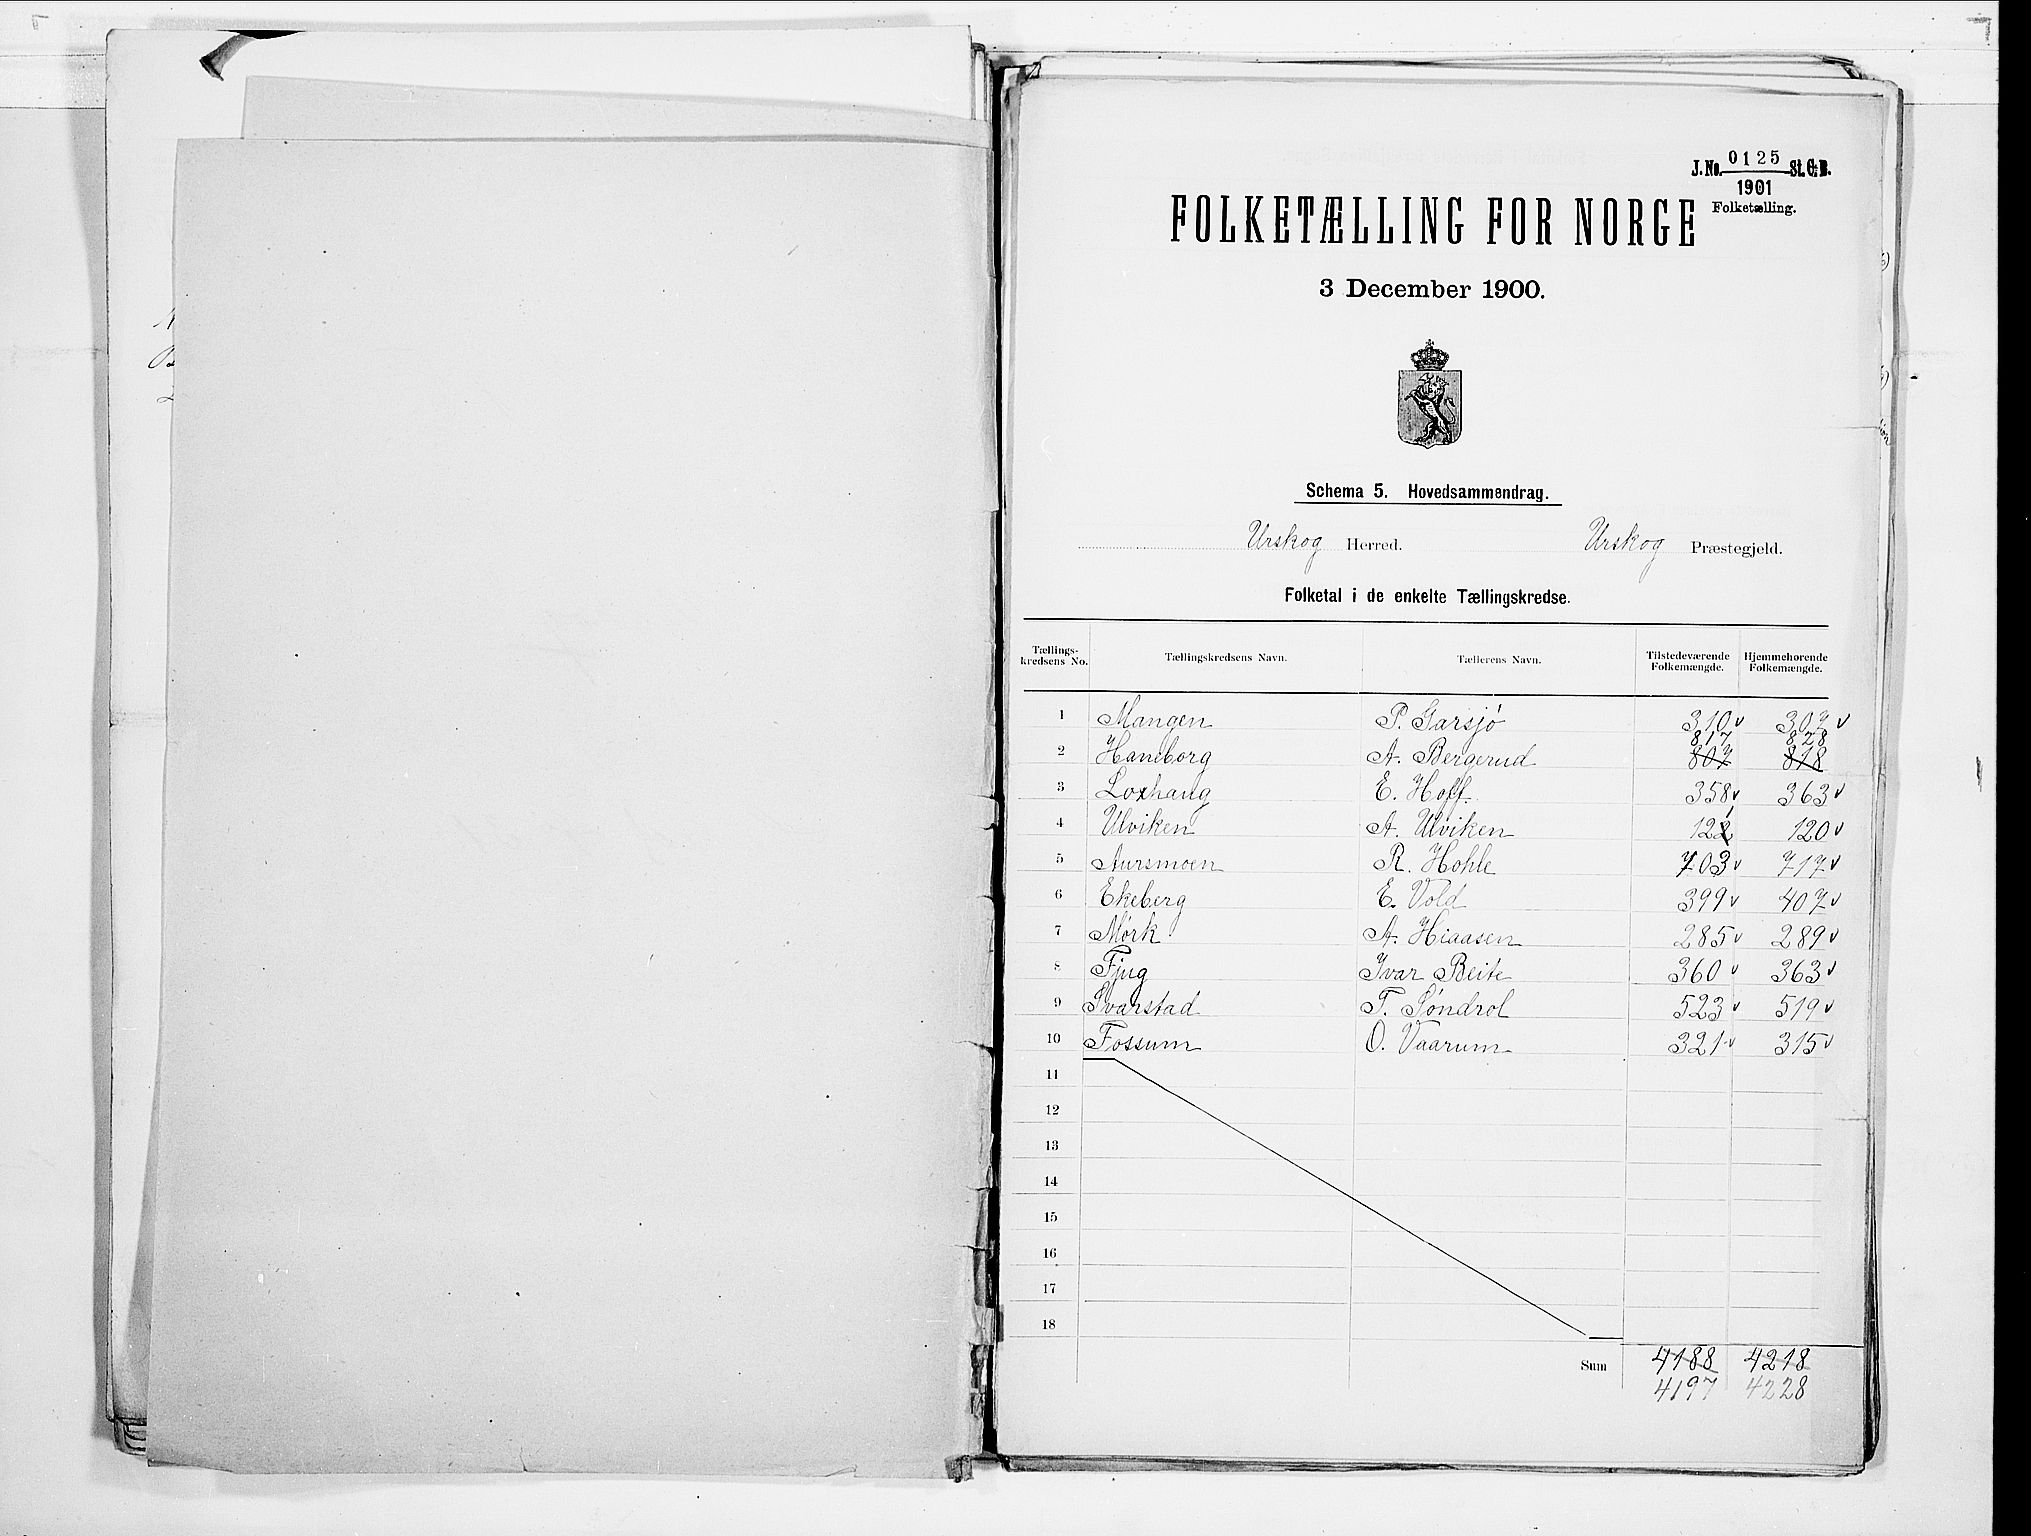 J. No. 0125 St. C. B.
1901
Folketælling.
FOLKETÆLLING FOR NORGE
3 December 1900.
Schema 5. Hovedsammendrag.
Urskog Herred. Urskog Præstegjeld.
Folketal i de enkelte Tællingskredse.
Tællings-kredsens No. Tællingskredsens Navn. Tællerens Navn. Tilstedeværende Folkemængde. Hjemmehørende Folkemængde.
1 Mangen P. Garsjø 310 v 307 v
817 828
2 Haneborg A. Bergerud 807 818
3 Loxhaug E. Hoff. 358 v 363 v
4 Ulviken A. Ulviken 122 1 120 v
5 Aursmoen R. Hohle 703 v 717 v
6 Ekeberg E. Vold 399 v 407 v
7 Mørk A. Hiaasen 285 v 289 v
8 Fjug Ivar Beite 360 v 363 v
9 Svarstad T. Søndrol 523 v 519 v
10 Fossum O. Vaarum 321 v 315 v
11
12
13
14
15
16
17
18
Sum 4188 4218
4197 4228